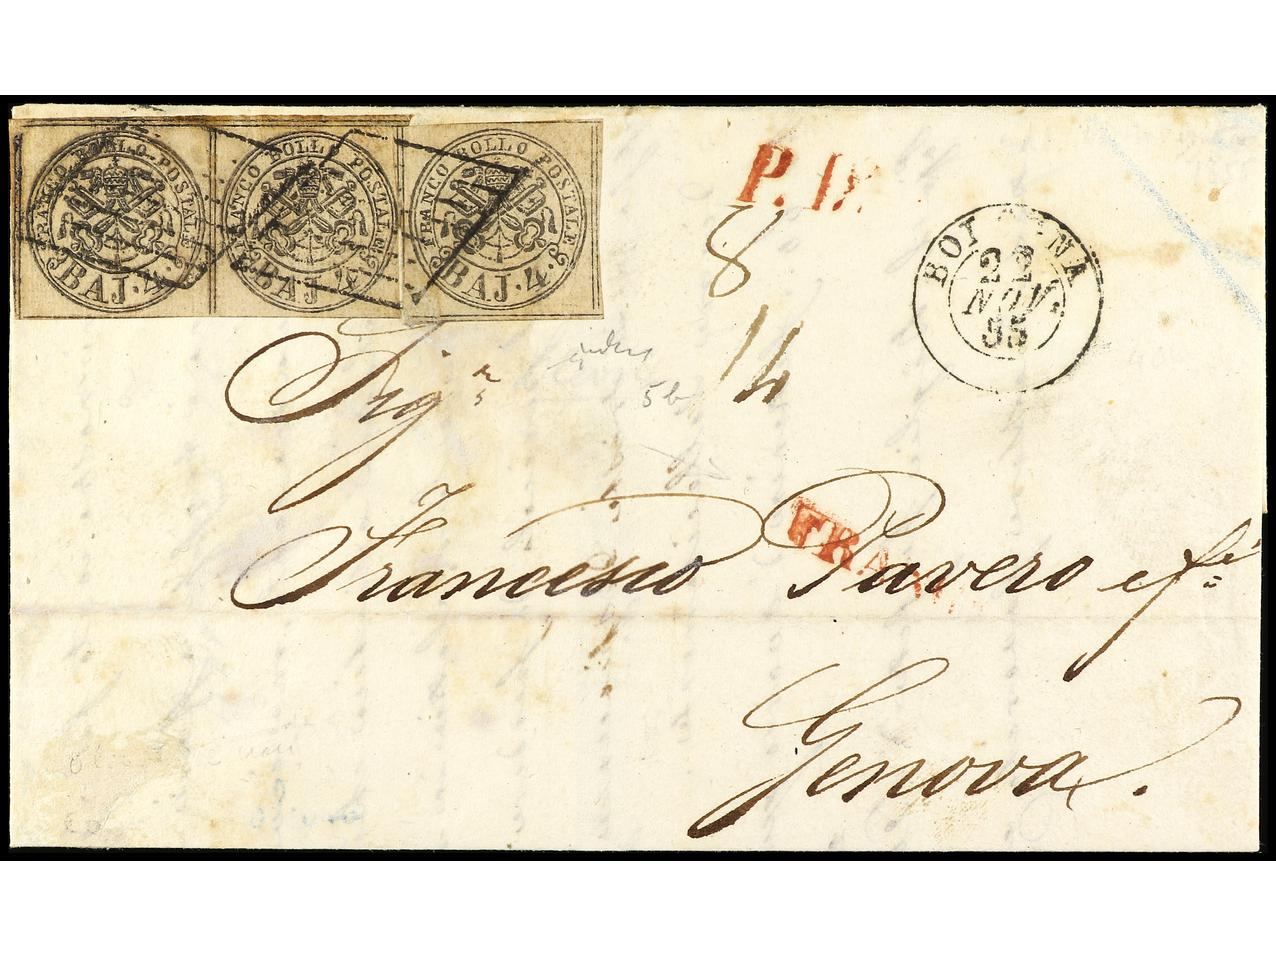 FRANCO BOLLO POSTALE
BAJ. 4
FRANCO BOLLO POSTALE
BAJ. 4
FRANCO BOLLO POSTALE
BAJ. 4
P. D.
8
14
BOLOGNA
22
NOV.
55
Sigr
5b
Francesco Pavero e fi
FRANCA
Genova.